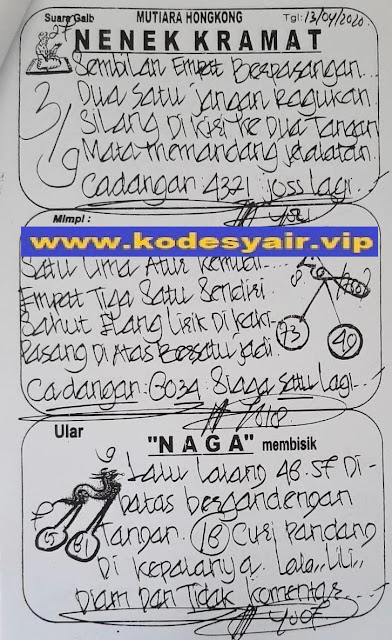 Suara Gaib MUTIARA HONGKONG Tgl: 13/04/2020
NENEK KRAMAT
Sembilan Empat Berpasangan
Dua Satu jangan Ragukan
Silang Di Kiri Ke Dua Tangan
Mata memandang
Cadangan 4321 joss lagi
3/9
Mimpi :
www.kodesyair.vip
Satu Lima Atur Kembali
Empat Tiga Satu Sendiri
Sahut Elang Lirik Di Kaki
Pasang Di Atas Bersatu jadi
73 40
Cadangan : 6034 Siaga satu lagi
Ular
"NAGA" membisik
Lalu Lalang 48. 57 Di-
batas bergandengan
Tangan. 18 Curi Pandang
Di Kepalanya Lala,, Lili,,
Diam Dan Tidak Komentar